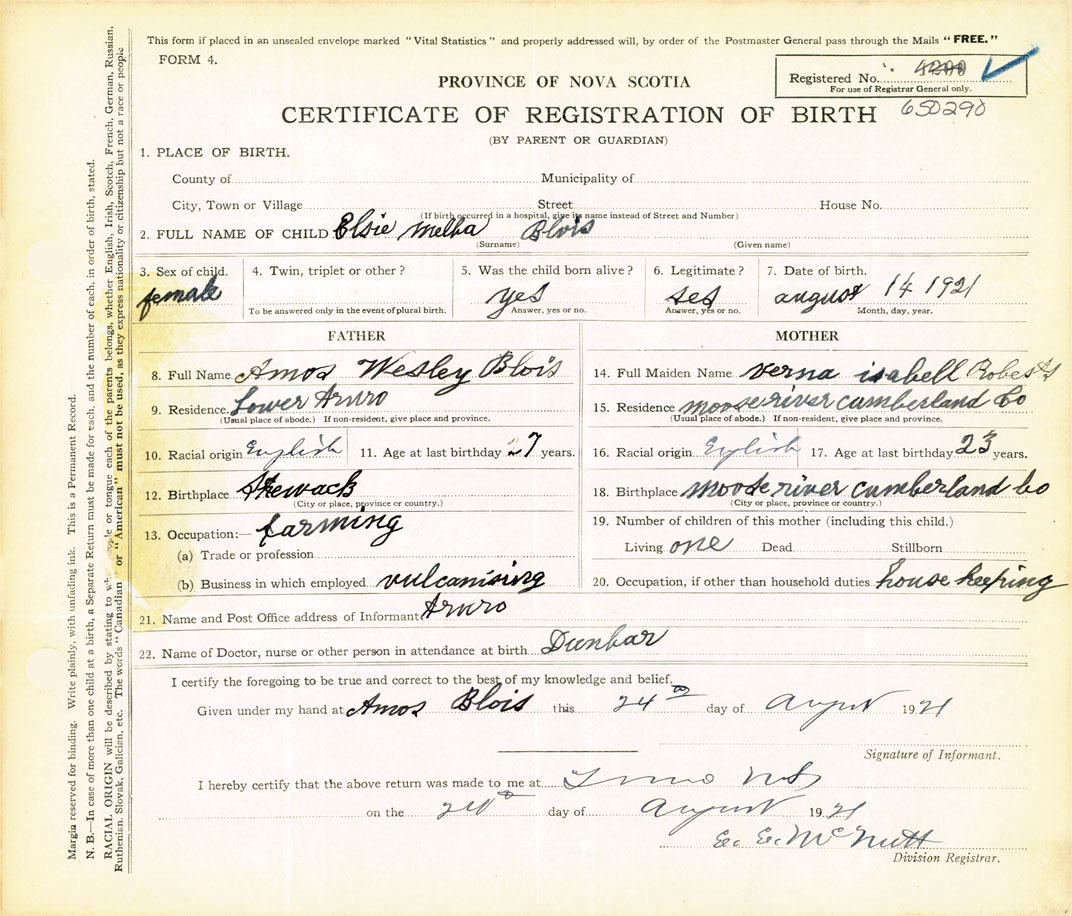 This form if placed in an unsealed envelope marked "Vital Statistics" and properly addressed will, by order of the Postmaster General pass through the Mails "FREE."
FORM 4.
Registered No. 4200
For use of Registrar General only.
650290
PROVINCE OF NOVA SCOTIA
CERTIFICATE OF REGISTRATION OF BIRTH
(BY PARENT OR GUARDIAN)
1. PLACE OF BIRTH.
County of Municipality of
City, Town or Village Street House No.
(If birth occurred in a hospital, give its name instead of Street and Number)
2. FULL NAME OF CHILD Elsie Melba Blois
(Surname) (Given name)
3. Sex of child. 4. Twin, triplet or other? 5. Was the child born alive? 6. Legitimate? 7. Date of birth.
female yes yes august 14 1921
To be answered only in the event of plural birth. Answer, yes or no. Answer, yes or no. Month, day, year.
FATHER
8. Full Name Amos Wesley Blois
9. Residence Lower Truro
(Usual place of abode.) If non-resident, give place and province.
10. Racial origin English 11. Age at last birthday 27 years.
12. Birthplace Shewack
(City or place, province or country.)
13. Occupation:— farming
(a) Trade or profession
(b) Business in which employed vulcanising
MOTHER
14. Full Maiden Name verna isabell Roberts
15. Residence moose river cumberland Co
(Usual place of abode.) If non-resident, give place and province.
16. Racial origin English 17. Age at last birthday 23 years.
18. Birthplace moose river cumberland Co
(City or place, province or country.)
19. Number of children of this mother (including this child.)
Living one Dead Stillborn
20. Occupation, if other than household duties house keeping
21. Name and Post Office address of Informant Truro
22. Name of Doctor, nurse or other person in attendance at birth Dunbar
I certify the foregoing to be true and correct to the best of my knowledge and belief.
Given under my hand at Amos Blois this 24th day of August 1921
Signature of Informant.
I hereby certify that the above return was made to me at Truro N.S.
on the 24th day of August 1921
E. E. McNutt
Division Registrar.
Margin reserved for binding. Write plainly, with unfading ink. This is a Permanent Record.
N. B.—In case of more than one child at a birth, a Separate Return must be made for each, and the number of each, in order of birth, stated.
RACIAL ORIGIN will be described by stating to people or tongue each of the parents belongs, whether English, Irish, Scotch, French, German, Russian,
Ruthenian, Slovak, Galician, etc. The words "Canadian" or "American" must not be used, as they express nationality or citizenship but not a race or people